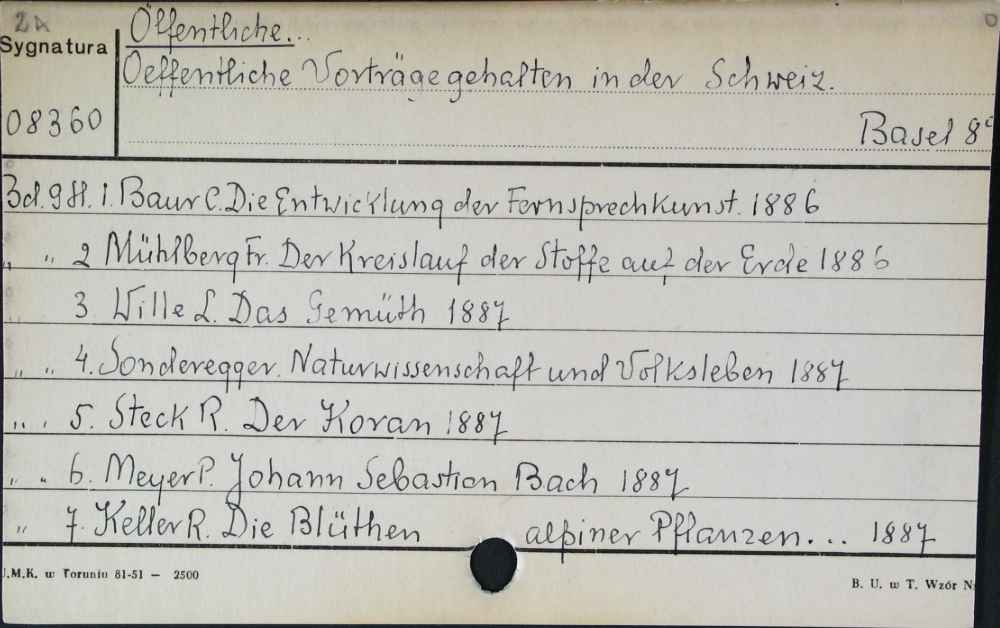 2A
Sygnatura
Öffentliche...
Oeffentliche Vorträge gehalten in der Schweiz.
08360
Basel 8°
Bd. 9 H. 1. Baur C. Die Entwicklung der Fernsprechkunst. 1886
" " 2 Mühlberg Fr. Der Kreislauf der Stoffe auf der Erde 1886
3. Wille L. Das Gemüth 1887
" " 4. Sonderegger. Naturwissenschaft und Volksleben 1887
" " 5. Steck R. Der Koran 1887
" " 6. Meyer P. Johann Sebastian Bach 1887
" 7. Keller R. Die Blüthen alpiner Pflanzen... 1887
U.M.K. w Toruniu 81-51 — 2500
B. U. w T. Wzór N